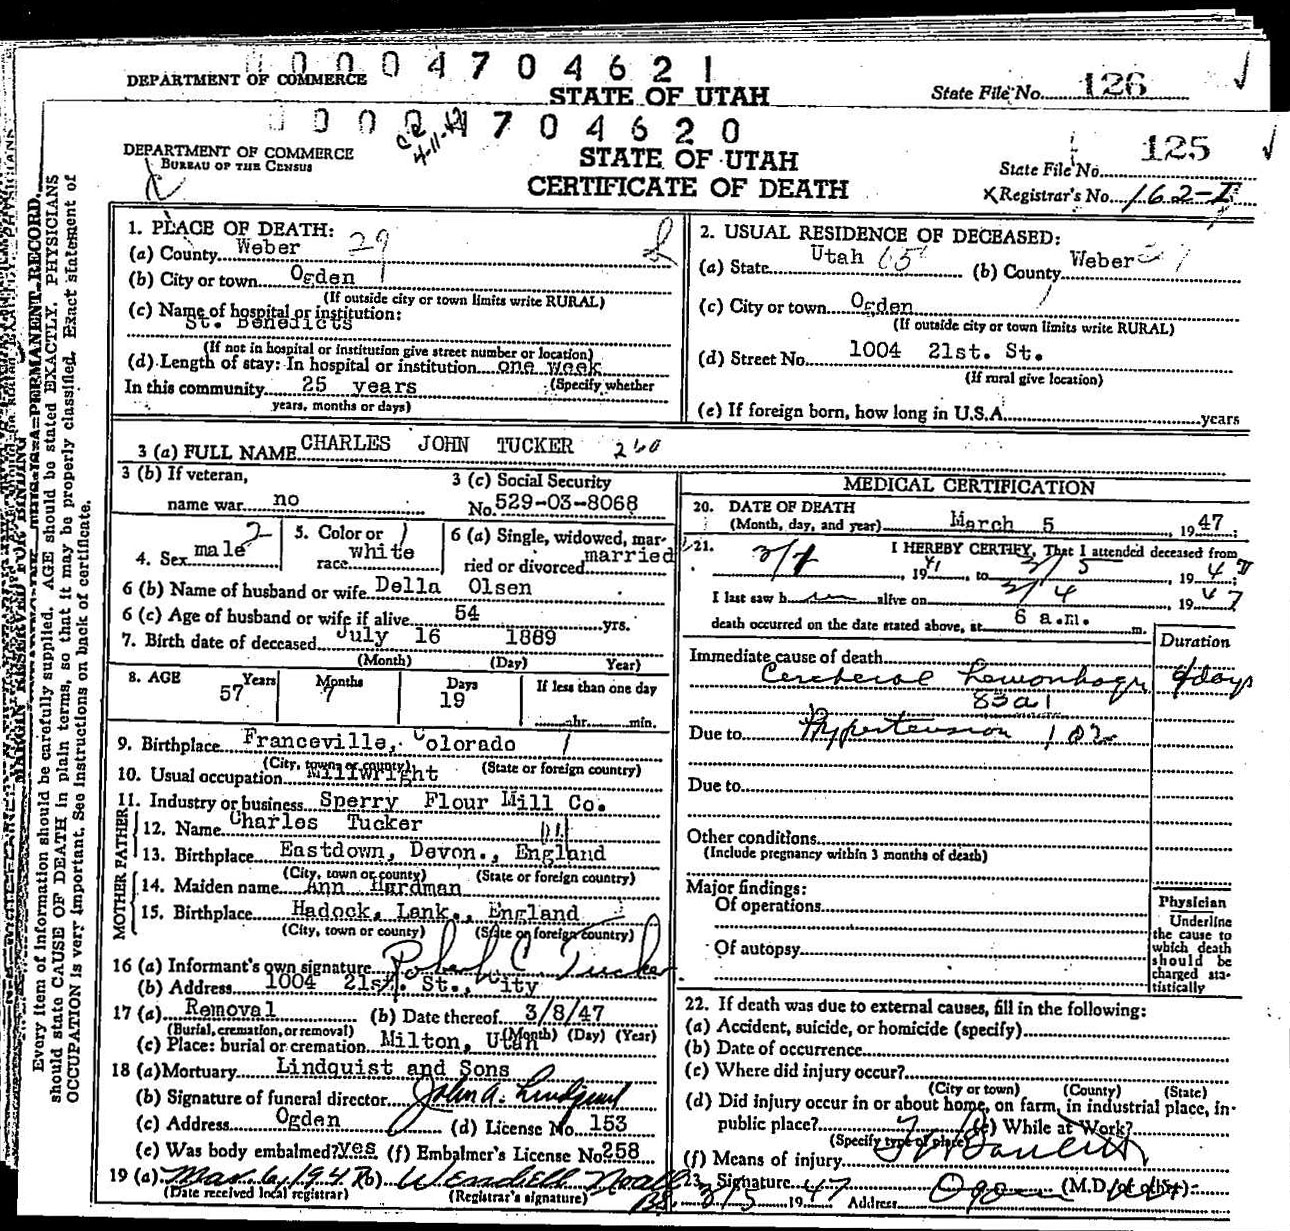 0000470462 1
DEPARTMENT OF COMMERCE
STATE OF UTAH
State File No. 126
000 704620
4-11-47
DEPARTMENT OF COMMERCE
BUREAU OF THE CENSUS
STATE OF UTAH
CERTIFICATE OF DEATH
State File No. 125
Registrar's No. 162-
MARGIN RESERVED FOR BINDING
Every item of information should be carefully supplied. AGE should be stated EXACTLY. PHYSICIANS
should state CAUSE OF DEATH in plain terms, so that it may be properly classified. Exact statement of
OCCUPATION is very important. See instructions on back of certificate.
1. PLACE OF DEATH:
(a) County Weber 29
(b) City or town Ogden
(If outside city or town limits write RURAL)
(c) Name of hospital or institution:
St. Benedicts
(If not in hospital or institution give street number or location)
(d) Length of stay: In hospital or institution one week
In this community 25 years (Specify whether
years, months or days)
2. USUAL RESIDENCE OF DECEASED:
(a) State Utah 65 (b) County Weber
(c) City or town Ogden
(If outside city or town limits write RURAL)
(d) Street No. 1004 21st. St.
(If rural give location)
(e) If foreign born, how long in U.S.A. years
3 (a) FULL NAME CHARLES JOHN TUCKER 260
3 (b) If veteran,
name war no
3 (c) Social Security
No. 529-03-8068
4. Sex male 2
5. Color or
race white 1
6 (a) Single, widowed, mar-
ried or divorced married
6 (b) Name of husband or wife Della Olsen
6 (c) Age of husband or wife if alive 54 yrs.
7. Birth date of deceased July 16 1889
(Month) (Day) Year)
8. AGE 57 Years 7 Months 19 Days If less than one day
hr. min.
9. Birthplace Franceville, Colorado 1
(City, town or county) (State or foreign country)
10. Usual occupation Millwright
11. Industry or business Sperry Flour Mill Co.
FATHER
12. Name Charles Tucker
13. Birthplace Eastdown, Devon., England
(City, town or county) (State or foreign country)
MOTHER
14. Maiden name Ann Hardman
15. Birthplace Hadock, Lank., England
(City, town or county) (State or foreign country)
16 (a) Informant's own signature Robert C. Tucker
(b) Address 1004 21st. St., City
17 (a) Removal (b) Date thereof 3/8/47
(Burial, cremation, or removal) (Month) (Day) (Year)
(c) Place: burial or cremation Milton, Utah
18 (a) Mortuary Lindquist and Sons
(b) Signature of funeral director John A. Lindquist
(c) Address Ogden (d) License No. 153
(e) Was body embalmed? yes (f) Embalmer's License No. 258
19 (a) Mar. 6, 1947 (b) Wendell Noall
(Date received local registrar) (Registrar's signature)
MEDICAL CERTIFICATION
20. DATE OF DEATH
(Month, day, and year) March 5, 1947:
21. I HEREBY CERTIFY, That I attended deceased from
1941, to 3/5, 1947;
I last saw him alive on 3/4, 1947
death occurred on the date stated above, at 6 a.m. m.
Duration
Immediate cause of death
Cerebral hemorrhage 4 days
83a1
Due to Hypertension 102
Due to
Other conditions
(Include pregnancy within 3 months of death)
Major findings:
Of operations
Of autopsy
Physician
Underline
the cause to
which death
should be
charged sta-
tistically
22. If death was due to external causes, fill in the following:
(a) Accident, suicide, or homicide (specify)
(b) Date of occurrence
(c) Where did injury occur?
(City or town) (County) (State)
(d) Did injury occur in or about home, on farm, in industrial place, in-
public place? (e) While at Work?
(Specify type of place)
(f) Means of injury
23. Signature (M.D. or other)
3/5 1947 Address Ogden